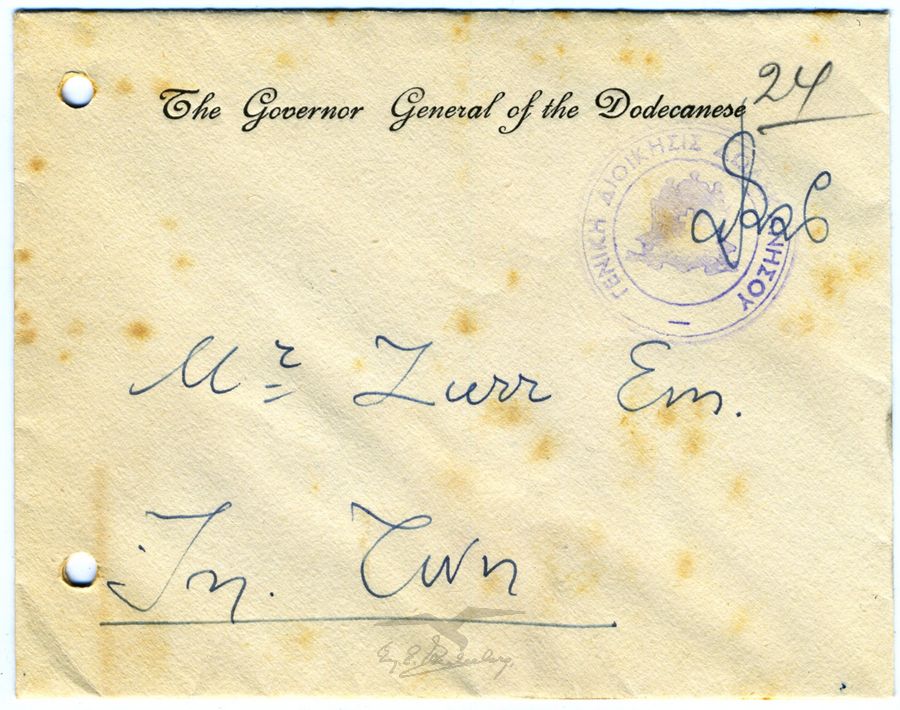 The Governor General of the Dodecanese
24
ΓΕΝΙΚΗ ΔΙΟΙΚΗΣΙΣ ΔΩ ΝΗΣΟΥ
Mr Zurr Em.
In. Twn